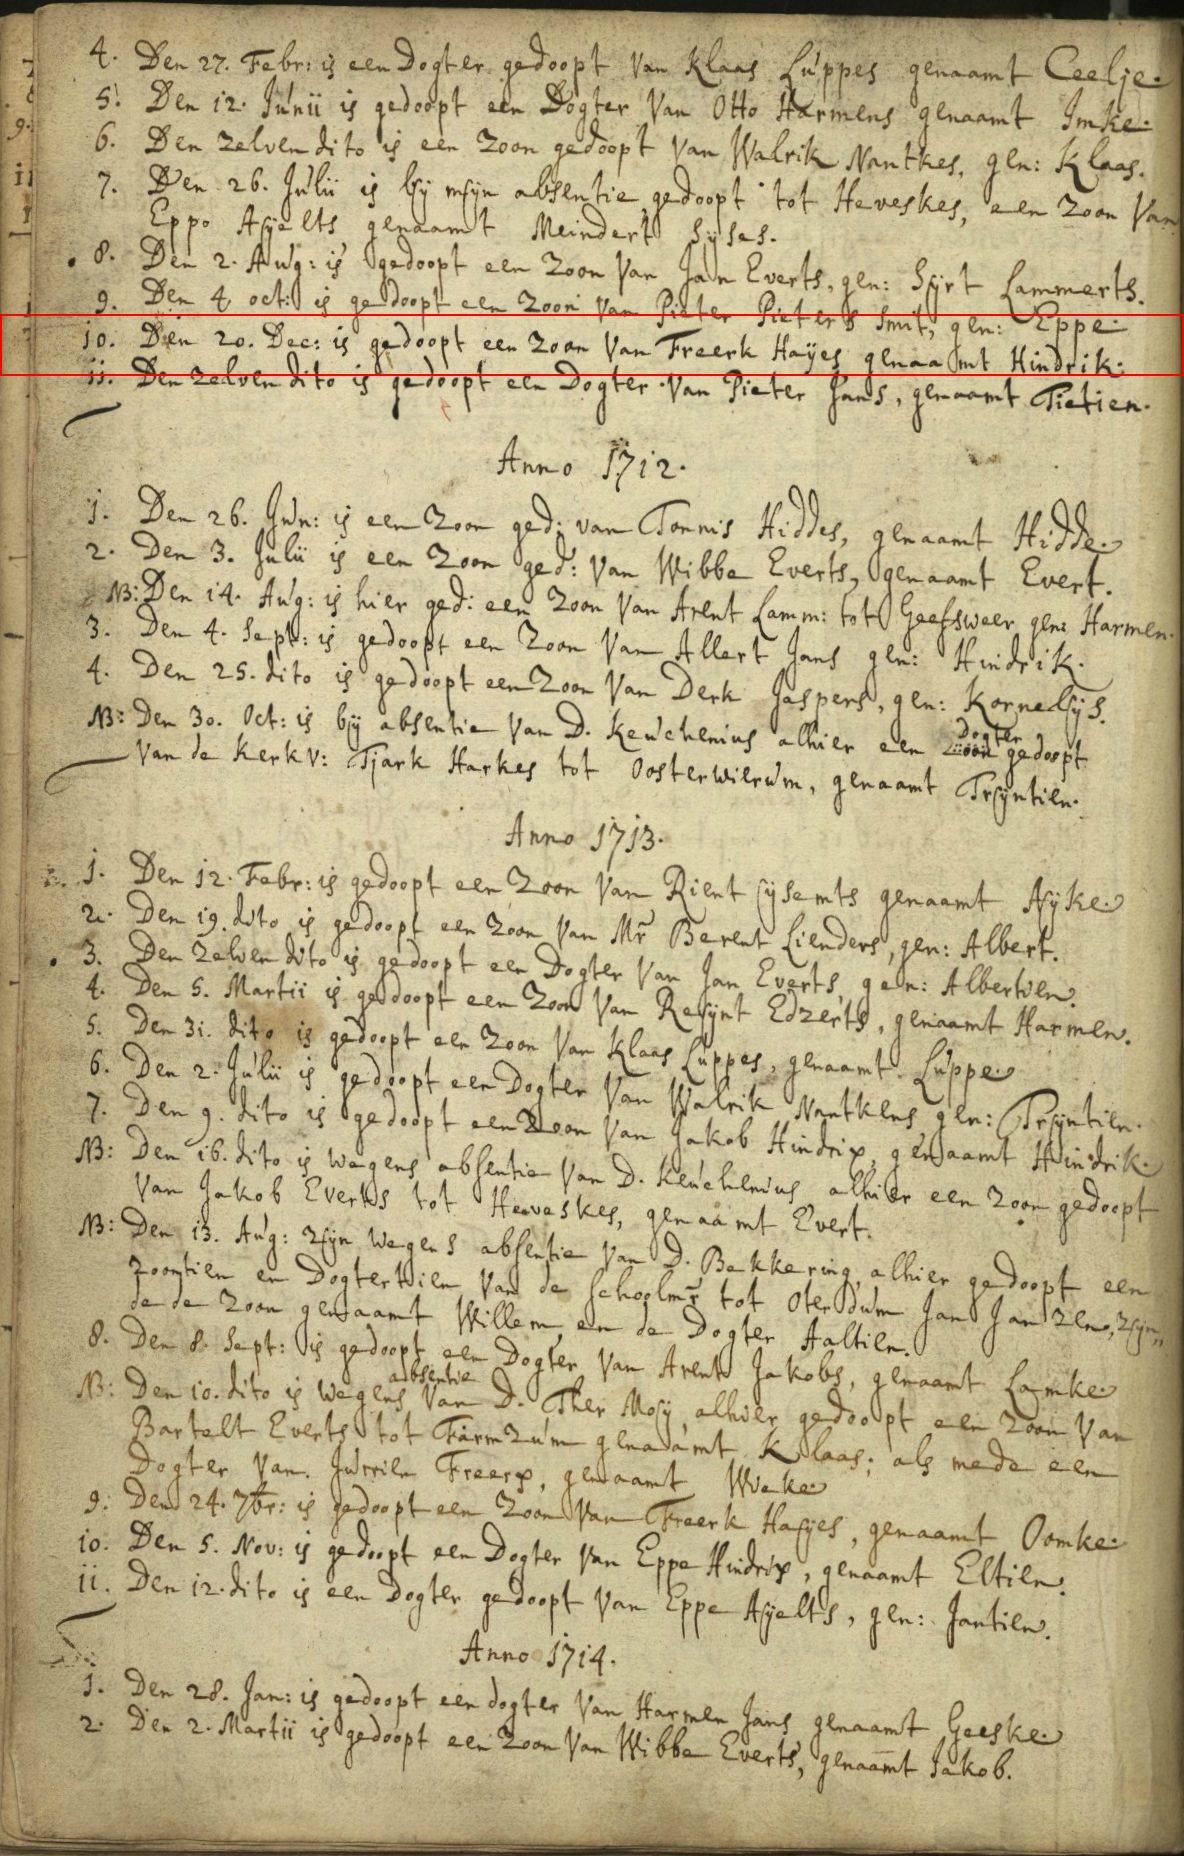 4. Den 27. Febr: is een Dogter gedoopt van Klaas Luppes genaamt Ceelje.
5. Den 12. Junii is gedoopt een Dogter Van Otto Harmens genaamt Imke.
6. Den zelven dito is een Zoon gedoopt Van Walrik Nantkes, gen: Klaas.
7. Den 26. Julii is bÿ mÿn absentie gedoopt tot Heveskes, een Zoon Van
Eppo Aÿelts genaamt Meindert Sÿses.
8. Den 2. Aug: is gedoopt een Zoon Van Jan Everts, gen: Sÿrt Lammerts.
9. Den 4 oct: is gedoopt een Zoon Van Pieter Pieters Smit, gen: Eppe
10. Den 20. Dec: is gedoopt een Zoon Van Freerk Haÿes genaamt Hindrik.
11. Den Zelven dito is gedoopt een Dogter Van Pieter Jans, genaamt Tietien.
Anno 1712.
1. Den 26. Jun: is een Zoon ged: van Tonnis Hiddes, genaamt Hidde.
2. Den 3. Julii is een Zoon ged: Van Wibbe Everts, genaamt Evert.
NB: Den 14. Aug: is hier ged: een Zoon Van Arent Lamm: tot Geefsweer gen: Harmen.
3. Den 4. Sept: is gedoopt een Zoon Van Allert Jans gen: Hindrik.
4. Den 25. dito is gedoopt een Zoon Van Derk Jaspers, gen: Kornelÿs.
NB: Den 30. Oct: is bÿ absentie Van D. Keuchenius alhier een Dogter gedoopt
Van de Kerkv: Tjark Harkes tot Oosterwierum, genaamt Trÿntien.
Anno 1713.
1. Den 12. Febr: is gedoopt een Zoon Van Rient Sÿsemts genaamt Aÿke.
2. Den 19. dito is gedoopt een Zoon Van Mr Berent Lienders, gen: Albert.
3. Den Zelven dito is gedoopt een Dogter Van Jan Everts, gen: Albertien.
4. Den 5. Martii is gedoopt een Zoon Van Reÿnt Edzerts, genaamt Harmen.
5. Den 31. dito is gedoopt een Zoon Van Klaas Luppes, genaamt Luppe.
6. Den 2. Julii is gedoopt een Dogter Van Walrik Nantkens gen: Trÿntien.
7. Den 9. dito is gedoopt een Zoon Van Jakob Hindrix, genaamt Hindrik.
NB: Den 16. dito is wegens absentie Van D. Keuchenius alhier een Zoon gedoopt
Van Jakob Everts tot Heveskes, genaamt Evert.
NB: Den 13. Aug: zÿn wegens absentie Van D. Bekkering, alhier gedoopt een
Zoontien en Dogtertien Van de Schoolmr tot Oterdum Jan Janzen, zÿn,,
de de Zoon genaamt Willem en de Dogter Aaltien.
8. Den 8. Sept: is gedoopt een Dogter Van Arent Jakobs, genaamt Lamke
NB: Den 10. dito is wegens absentie Van D. Ther Moÿ alhier gedoopt een Zoon Van
Bartelt Everts tot Farmzum genaamt Klaas; als mede een
Dogter Van Jurrien Freerx, genaamt Wieke
9. Den 24. 7br: is gedoopt een Zoon Van Freerk Haÿes, genaamt Oomke
10. Den 5. Nov: is gedoopt een Dogter Van Eppe Hindrix, genaamt Eltien.
11. Den 12. dito is een Dogter gedoopt Van Eppe Aÿelts, gen: Jantien.
Anno 1714.
1. Den 28. Jan: is gedoopt een dogter Van Harmen Jans genaamt Geeske
2. Den 2. Martii is gedoopt een Zoon Van Wibbe Everts, genaamt Jakob.